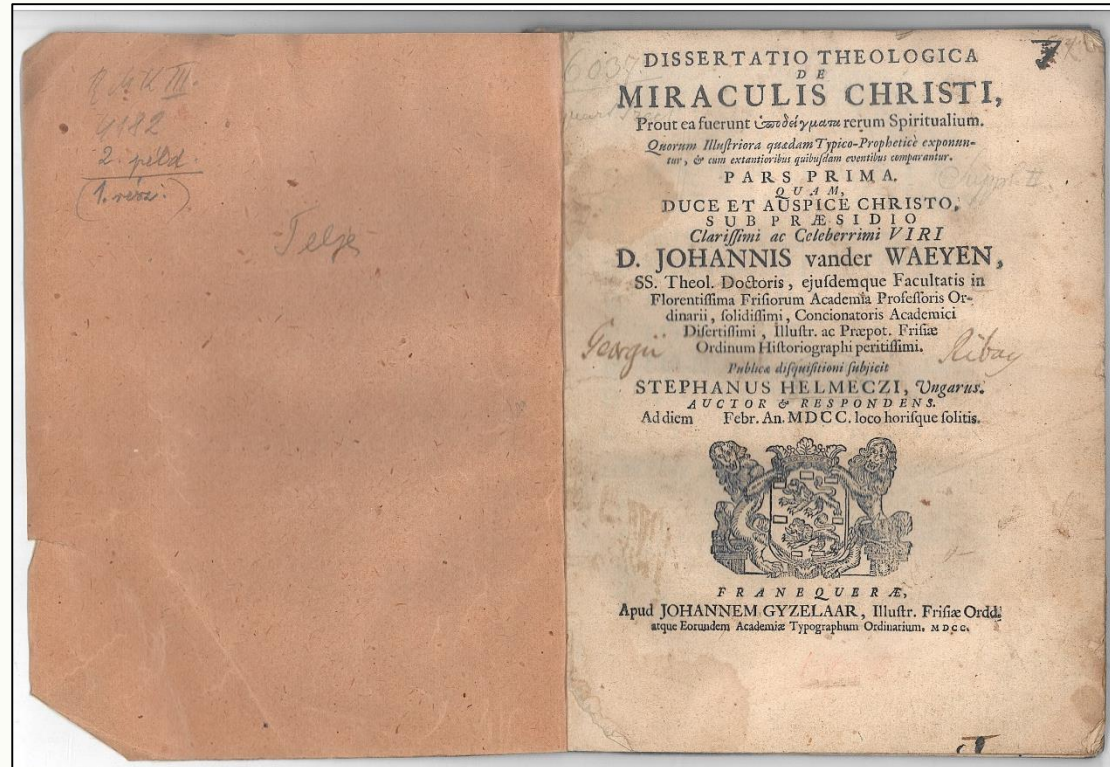 RMK III.
4182
2. péld.
(1. rész.)
Telje
6037
DISSERTATIO THEOLOGICA
DE
MIRACULIS CHRISTI,
Prout ea fuerunt ὑποδείγματα rerum Spiritualium.
Quorum Illuſtriora quædam Typico-Propheticè exponun-
tur, & cum extantioribus quibuſdam eventibus comparantur.
PARS PRIMA.
QUAM,
DUCE ET AUSPICE CHRISTO,
SUB PRÆSIDIO
Clariſſimi ac Celeberrimi VIRI
D. JOHANNIS vander WAEYEN,
SS. Theol. Doctoris, ejuſdemque Facultatis in
Florentiſſima Friſiorum Academia Profeſſoris Or-
dinarii, ſolidiſſimi, Concionatoris Academici
Diſertiſſimi, Illuſtr. ac Præpot. Friſiæ
Ordinum Hiſtoriographi peritiſſimi.
Georgii Ribay
Publicæ diſquiſitioni ſubjicit
STEPHANUS HELMECZI, Ungarus.
AUCTOR & RESPONDENS.
Ad diem Febr. An. MDCC. loco horiſque ſolitis.
FRANEQUERÆ,
Apud JOHANNEM GYZELAAR, Illuſtr. Friſiæ Ordd.
atque Eorundem Academiæ Typographum Ordinarium. MDCC.